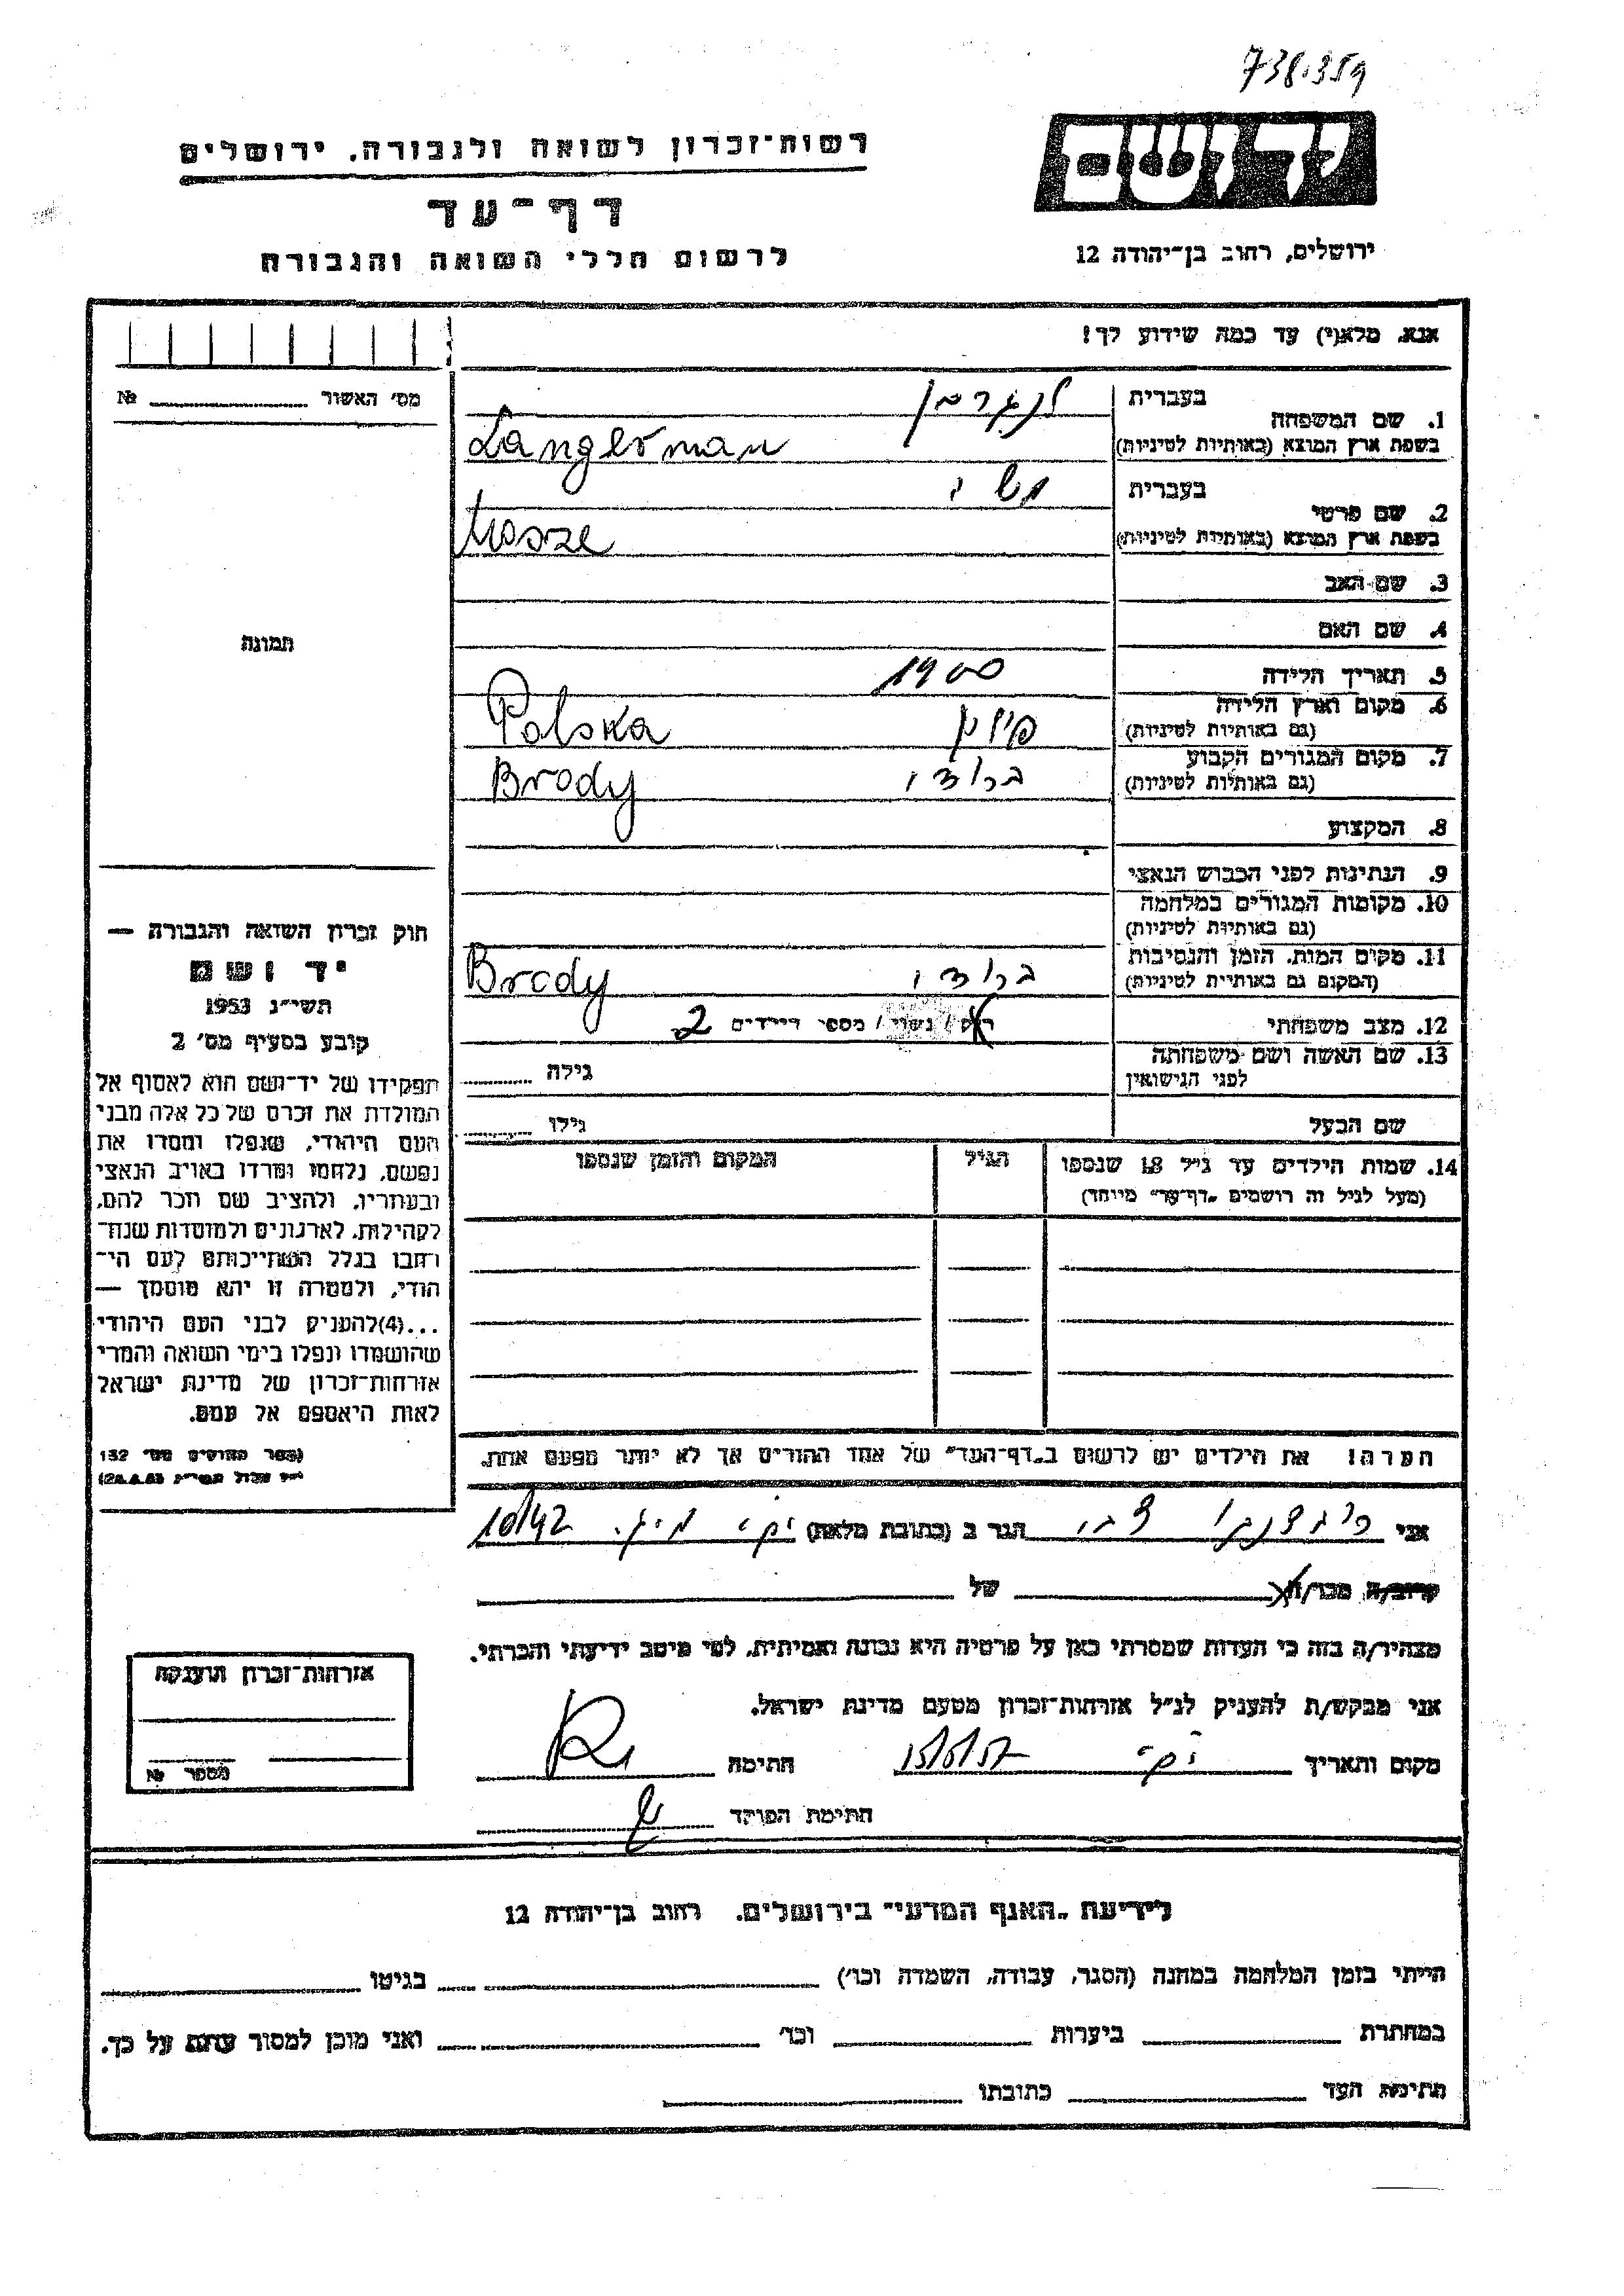 738359
יד ושם
רשות־זכרון לשואה ולגבורה, ירושלים
דף־עד
לרשום חללי השואה והגבורה
ירושלים, רחוב בן־יהודה 12
אנא, מלא(י) עד כמה שידוע לך!
מס׳ האשור № 
1. שם המשפחה
בעברית לנגרמן
בשפת ארץ המוצא (באותיות לטיניות) Langerman
2. שם פרטי
בעברית משה
בשפת ארץ המוצא (באותיות לטיניות) Mosze
3. שם האב
4. שם האם
תמונה
5. תאריך הלידה 1900
6. מקום וארץ הלידה
(גם באותיות לטיניות) פולין Polska
7. מקום המגורים הקבוע
(גם באותיות לטיניות) ברודי Brody
8. המקצוע
9. הנתינות לפני הכבוש הנאצי
10. מקומות המגורים במלחמה
(גם באותיות לטיניות)
11. מקום המות, הזמן והנסיבות
(המקום גם באותיות לטיניות) ברודי Brody
12. מצב משפחתי רוק / נשוי / מספר הילדים 2
13. שם האשה ושם משפחתה
לפני הנישואין גילה
שם הבעל גילו
14. שמות הילדים עד גיל 18 שנספו הגיל המקום והזמן שנספו
(מעל לגיל זה רושמים „דף־עד״ מיוחד)
חוק זכרון השואה והגבורה —
יד ושם
תשי״ג 1953
קובע בסעיף מס׳ 2
תפקידו של יד־ושם הוא לאסוף אל
המולדת את זכרם של כל אלה מבני
העם היהודי, שנפלו ומסרו את
נפשם, נלחמו ומרדו באויב הנאצי
ובעוזריו, ולהציב שם וזכר להם,
לקהילות, לארגונים ולמוסדות שנח־
רבו בגלל השתייכותם לעם הי־
הודי, ולמטרה זו יהא מוסמך —
...(4)להעניק לבני העם היהודי
שהושמדו ונפלו בימי השואה והמרי
אזרחות־זכרון של מדינת ישראל
לאות היאספם אל עמם.
(ספר החוקים מס׳ 132
הערה! את הילדים יש לרשום ב„דף־העד״ של אחד ההורים אך לא יותר מפעם אחת.
אני הגר ב (כתובת מלאה) 10/42
קרוב/ה מכר/ה של
מצהיר/ה בזה כי העדות שמסרתי כאן על פרטיה היא נכונה ואמיתית, לפי מיטב ידיעתי והכרתי.
אני מבקש/ת להעניק לנ״ל אזרחות־זכרון מטעם מדינת ישראל.
מקום ותאריך 15/6/57 חתימה
חתימת הפוקד
אזרחות־זכרון הוענקה
מספר №
לידיעת „האגף המדעי״ בירושלים, רחוב בן־יהודה 12
הייתי בזמן המלחמה במחנה (הסגר, עבודה, השמדה וכו׳) בגיטו
במחתרת ביערות וכו׳ ואני מוכן למסור עדות על כך.
חתימת העד כתובתו